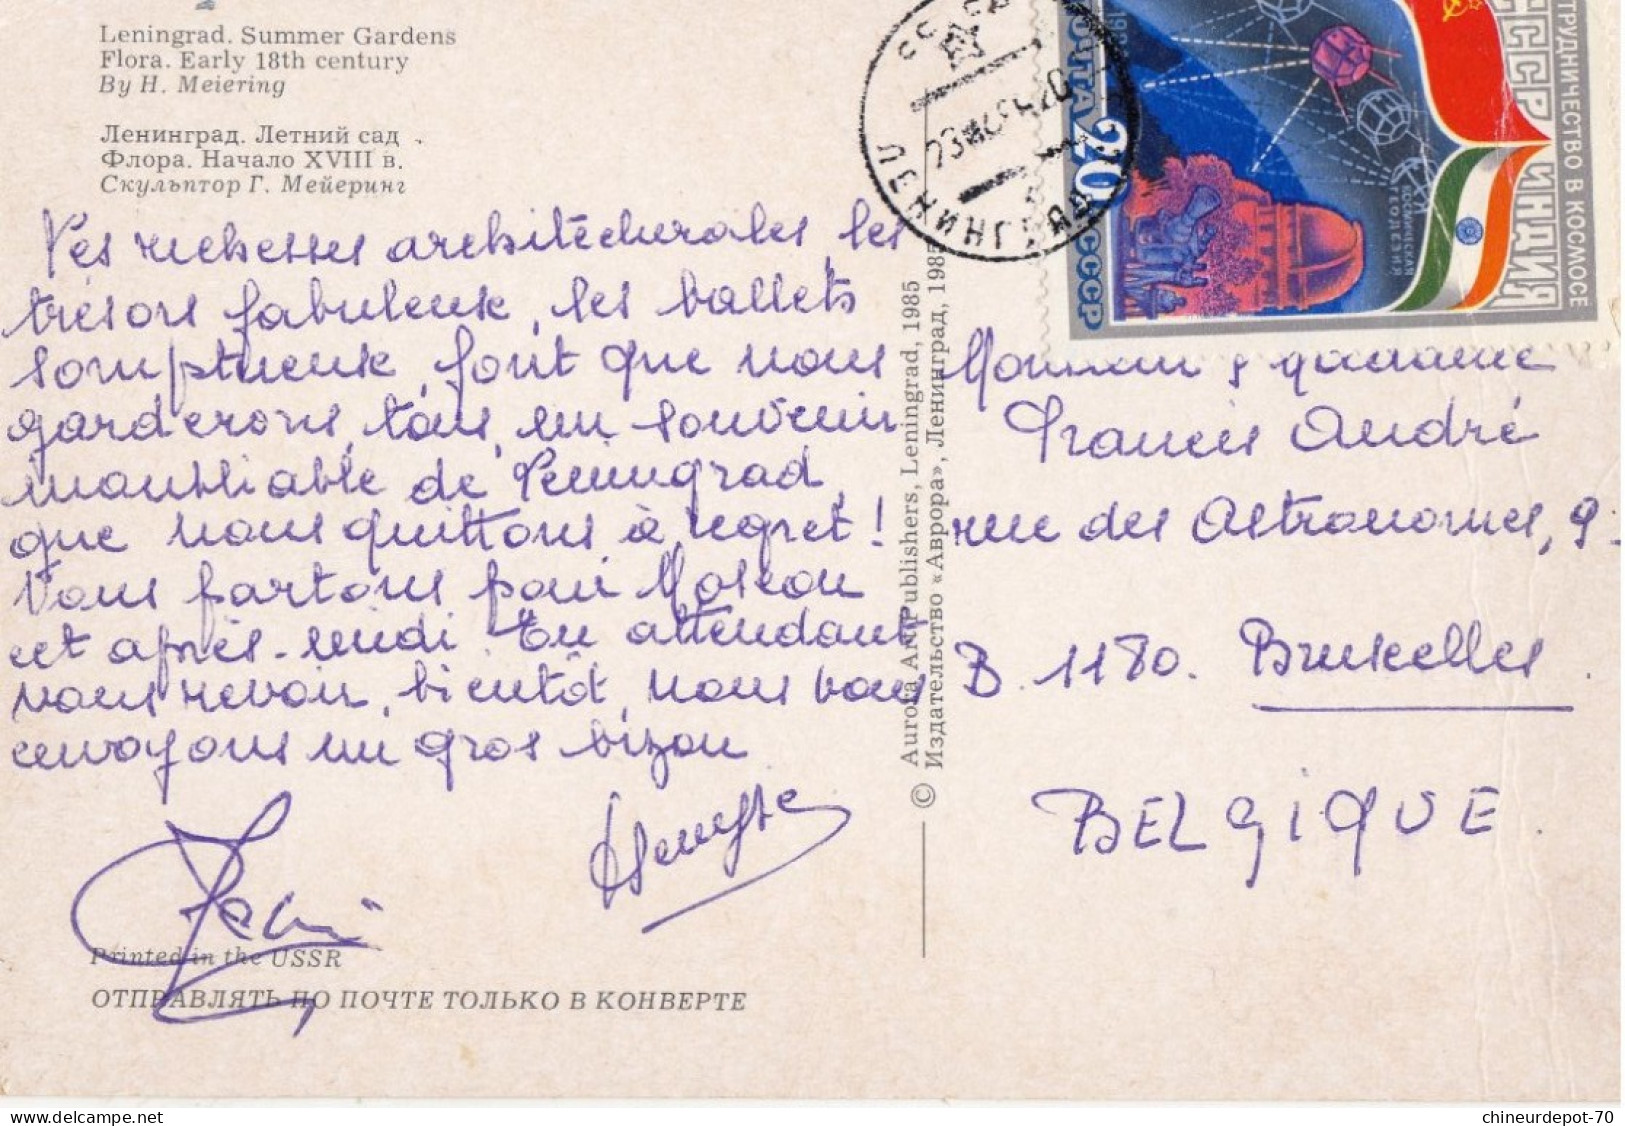 Leningrad. Summer Gardens
Flora. Early 18th century
By H. Meiering
Ленинград. Летний сад
Флора. Начало XVIII в.
Скульптор Г. Мейеринг
Les richesses architecturales, les
trésors fabuleux, les ballets
somptueux, font que nous
garderons, tous, un souvenir
inoubliable de Leningrad,
que nous quittons à regret!
Nous partons pour Moscou
cet après-midi. En attendant
vous revoir, bientôt, nous vous
envoyons un gros bizou
Printed in the USSR
ОТПРАВЛЯТЬ ПО ПОЧТЕ ТОЛЬКО В КОНВЕРТЕ
© Aurora Art Publishers, Leningrad, 1985
Издательство «Аврора», Ленинград, 1985
СССР
23
ЛЕНИНГРАД
ПОЧТА 20 СССР
КОСМИЧЕСКАЯ
ГЕОДЕЗИЯ
СССР ИНДИЯ
ТРУДНИЧЕСТВО В КОСМОСЕ
Monsieur & Madame
Francis André
rue des Astronomes, 9.
B. 1180. Bruxelles
BELGIQUE.
chineurdepot-70
www.delcampe.net